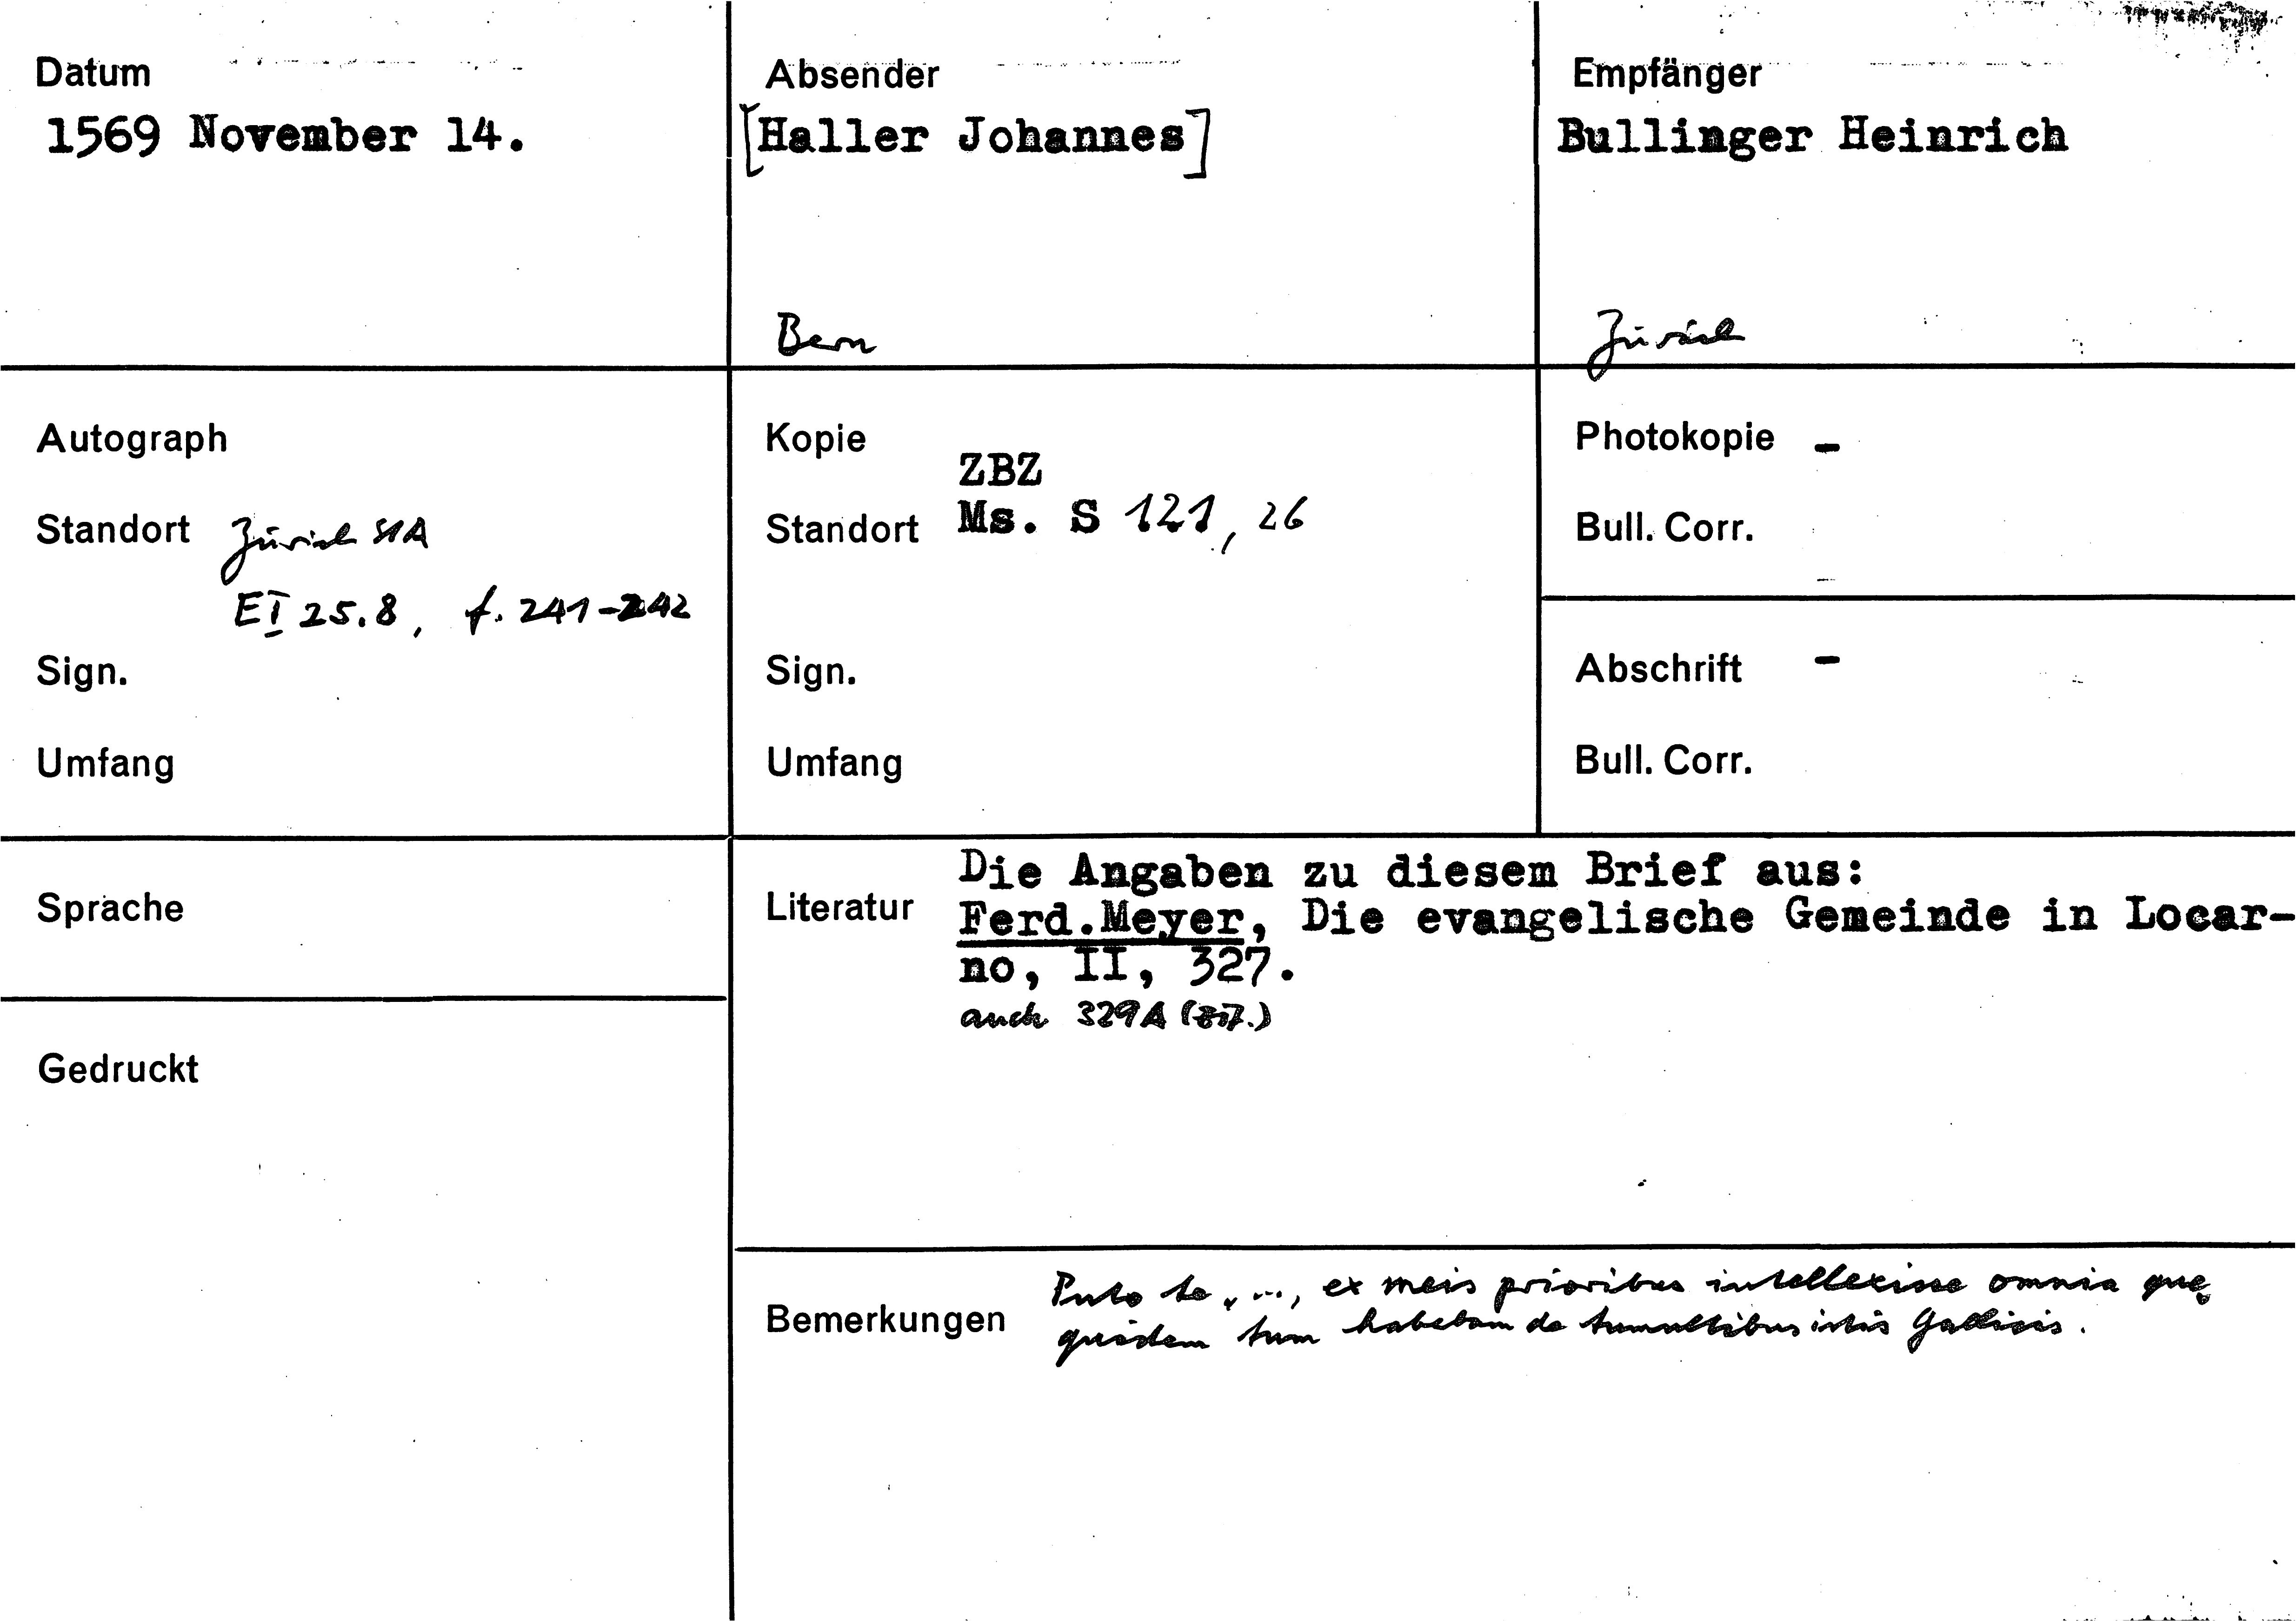 Datum
1569 November 14.
Absender
[Haller Johannes]
Bern
Empfänger
Bullinger Heinrich
Zürich
Autograph
Standort Zürich StA
E I 25.8, f. 241-242
Sign.
Umfang
Kopie
ZBZ
Standort Ms. S 121, 26
Sign.
Umfang
Photokopie -
Bull. Corr.
Abschrift -
Bull. Corr.
Sprache
Gedruckt
Literatur
Die Angaben zu diesem Brief aus:
Ferd.Meyer, Die evangelische Gemeinde in Locar-
no, II, 327.
auch 329A (Zit.)
Bemerkungen
Puto te, ..., ex meis prioribus intellexisse omnia quę
quidem tum habebam de tumultibus istis Gallicis.